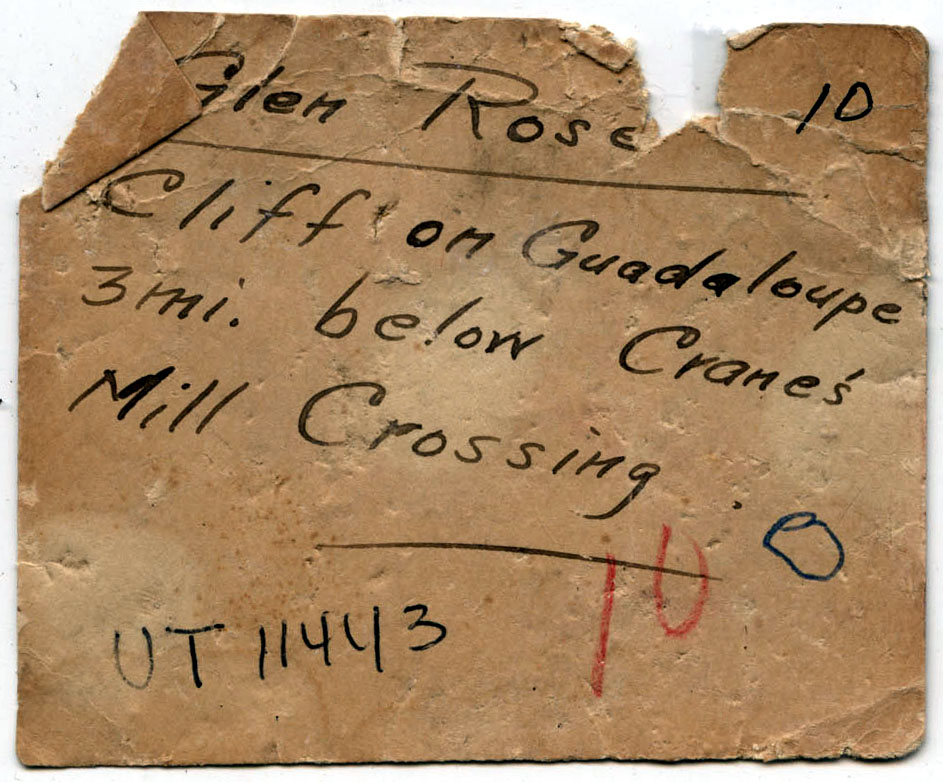 Glen Rose 10
Cliff on Guadaloupe
3 mi. below Crane's
Mill Crossing.
O
10
UT 11443